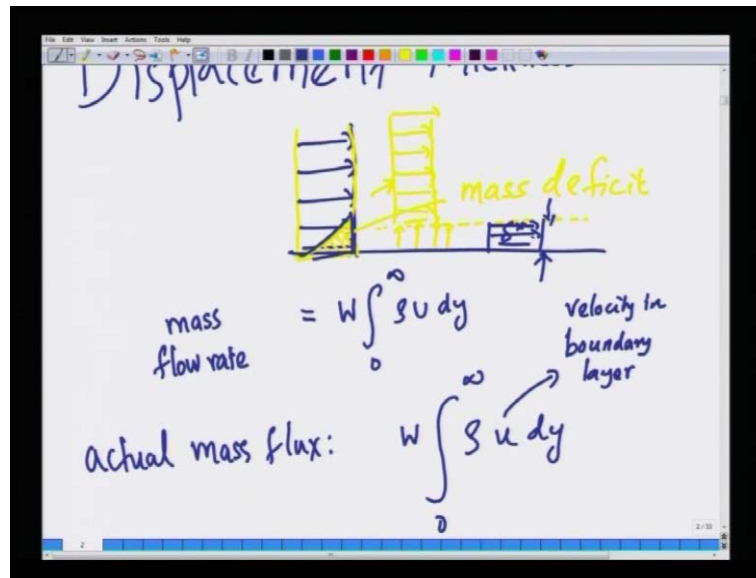 File Edit View Insert Actions Tools Help
Displacement Thickness
mass deficit
mass flow rate = W ∫₀^∞ ρ U dy
velocity in boundary layer
actual mass flux: W ∫₀^∞ ρ u dy
2
2/10